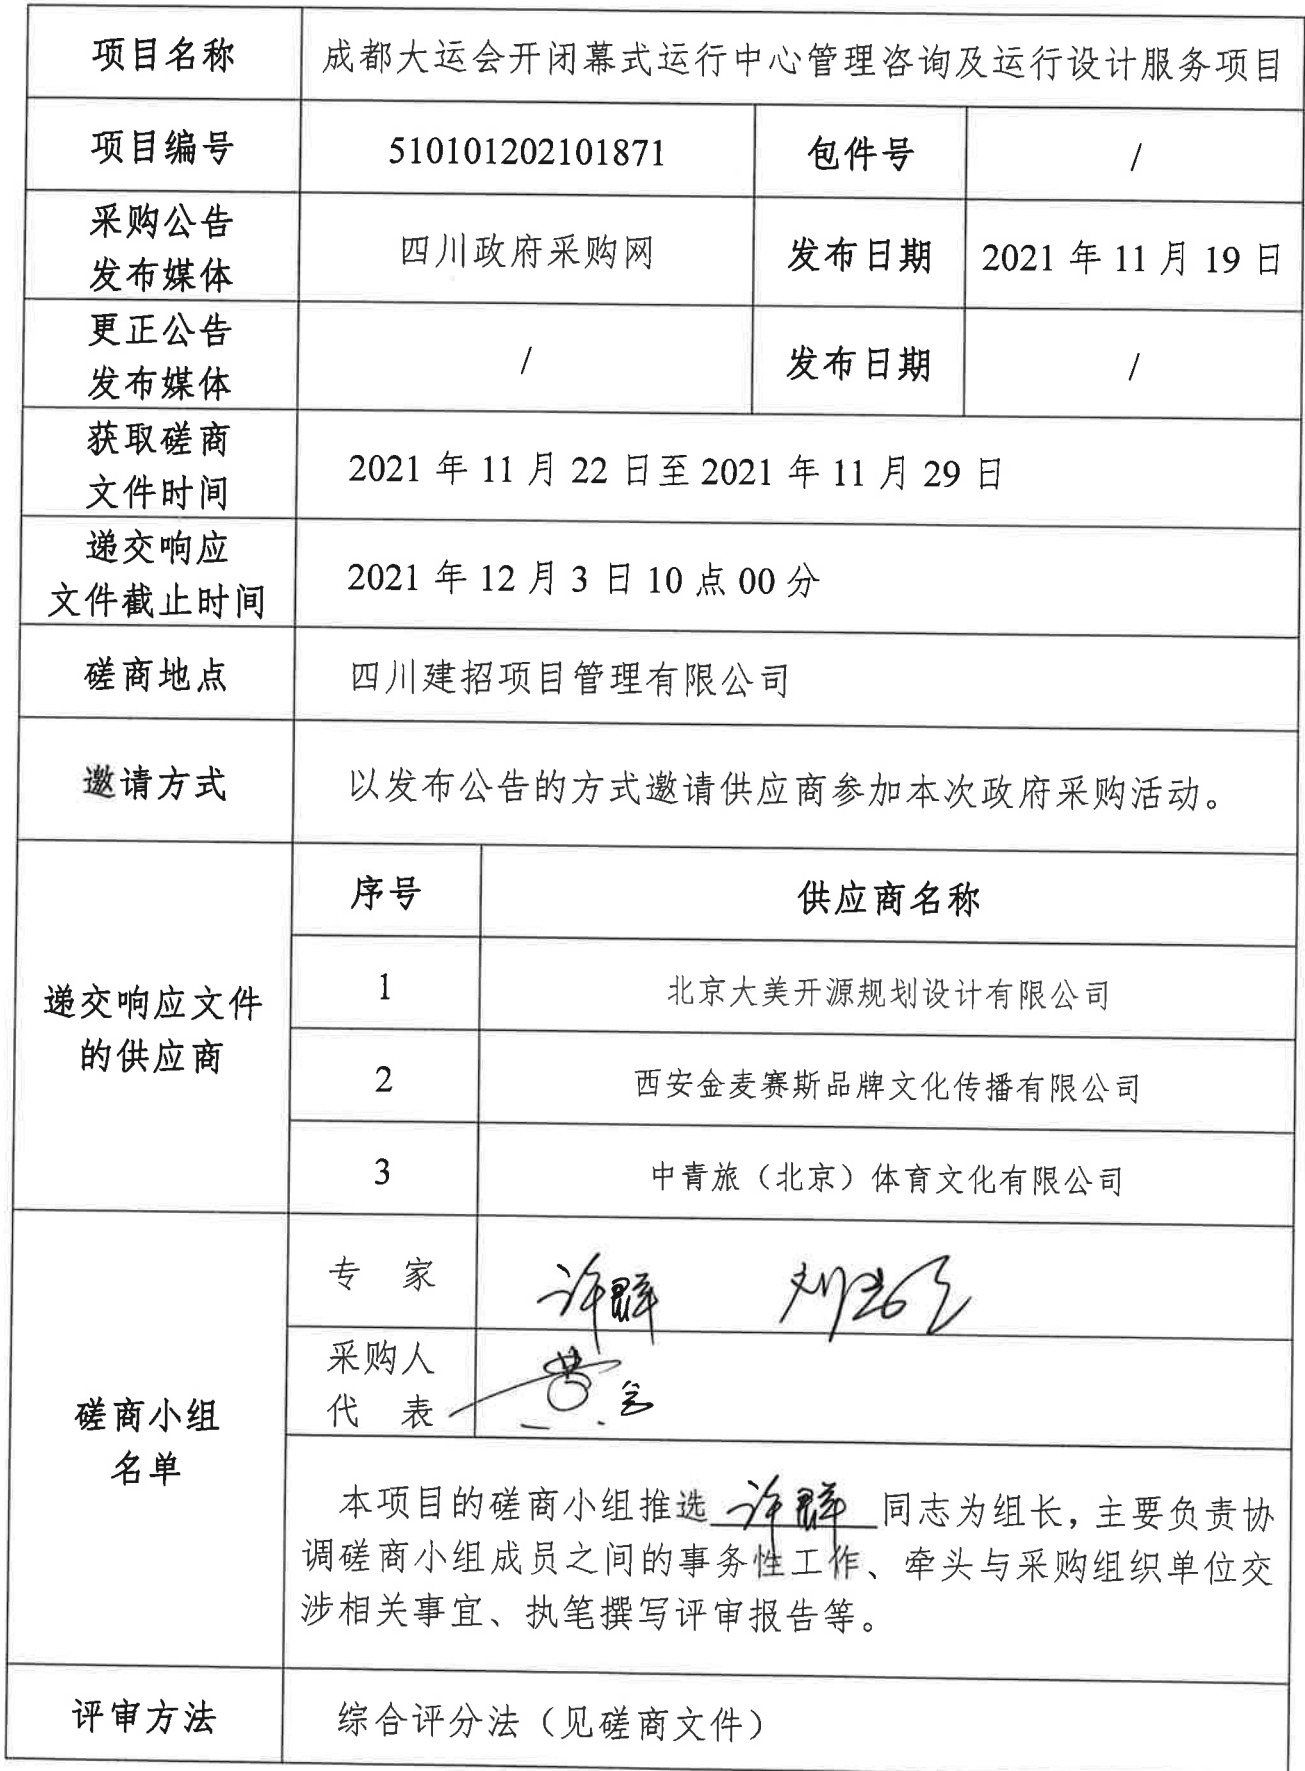 项目名称 成都大运会开闭幕式运行中心管理咨询及运行设计服务项目
项目编号 510101202101871 包件号 /
采购公告
发布媒体 四川政府采购网 发布日期 2021 年 11 月 19 日
更正公告
发布媒体 / 发布日期 /
获取磋商
文件时间 2021 年 11 月 22 日至 2021 年 11 月 29 日
递交响应
文件截止时间 2021 年 12 月 3 日 10 点 00 分
磋商地点 四川建招项目管理有限公司
邀请方式 以发布公告的方式邀请供应商参加本次政府采购活动。
递交响应文件
的供应商
序号 供应商名称
1 北京大美开源规划设计有限公司
2 西安金麦赛斯品牌文化传播有限公司
3 中青旅（北京）体育文化有限公司
磋商小组
名单
专 家 许群
采购人
代 表
本项目的磋商小组推选 许群 同志为组长，主要负责协
调磋商小组成员之间的事务性工作、牵头与采购组织单位交
涉相关事宜、执笔撰写评审报告等。
评审方法 综合评分法（见磋商文件）